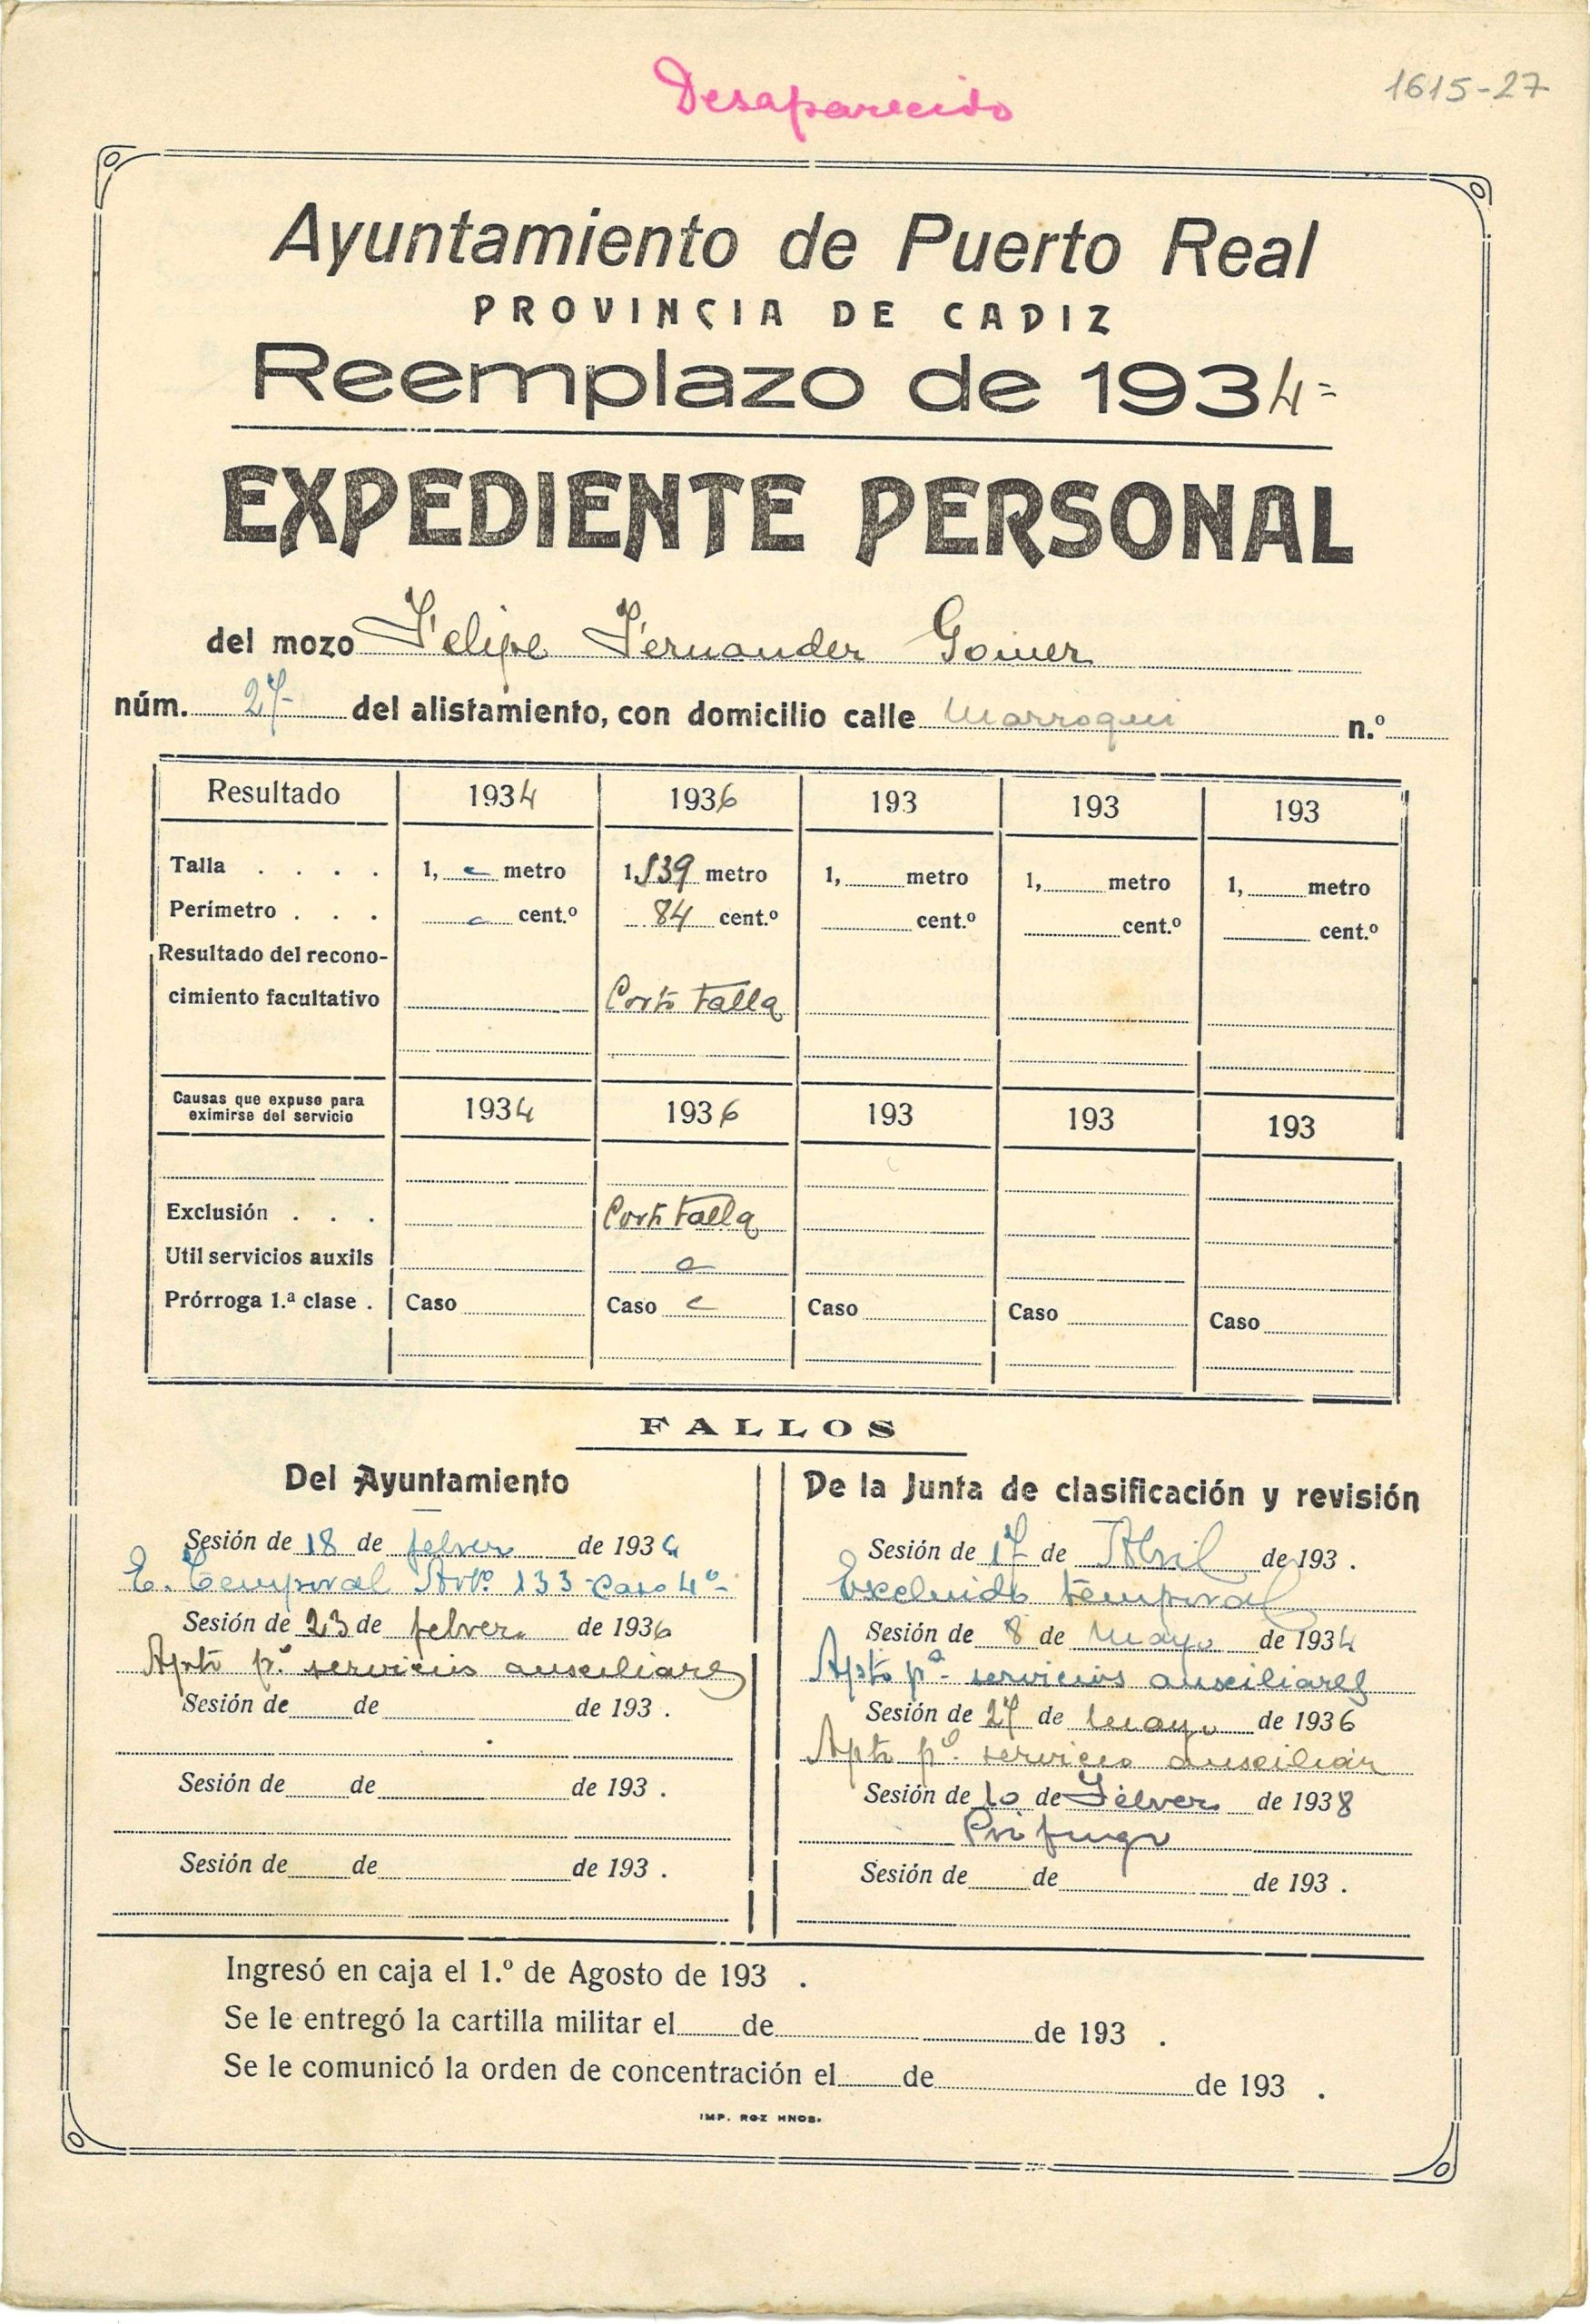 Desaparecido
1615-27
Ayuntamiento de Puerto Real
PROVINCIA DE CADIZ
Reemplazo de 1934=
EXPEDIENTE PERSONAL
del mozo Felipe Fernandez Gomez
núm. 27 del alistamiento, con domicilio calle Marroqui n.º
Resultado 1934 1936 193 193 193
Talla . . . . 1, metro 1,539 metro 1, metro 1, metro 1, metro
Perímetro . . . cent.º 84 cent.º cent.º cent.º cent.º
Resultado del recono-
cimiento facultativo Corto talla
Causas que expuso para
eximirse del servicio 1934 1936 193 193 193
Exclusión . . . Corto talla
Util servicios auxils
Prórroga 1.ª clase . Caso Caso Caso Caso Caso
FALLOS
Del Ayuntamiento
Sesión de 18 de febrero de 1934
E. Temporal Artº 133 Caso 4º
Sesión de 23 de febrero de 1936
Apto pª servicios auxiliares
Sesión de de de 193 .
Sesión de de de 193 .
Sesión de de de 193 .
De la Junta de clasificación y revisión
Sesión de 17 de Abril de 193 .
Excluido temporal
Sesión de 8 de Mayo de 1934
Apto pª servicios auxiliares
Sesión de 27 de mayo de 1936
Apto pª servicio auxiliar
Sesión de 10 de Febrero de 1938
Prófugo
Sesión de de de 193 .
Ingresó en caja el 1.º de Agosto de 193 .
Se le entregó la cartilla militar el de de 193 .
Se le comunicó la orden de concentración el de de 193 .
IMP. ROZ HNOS.